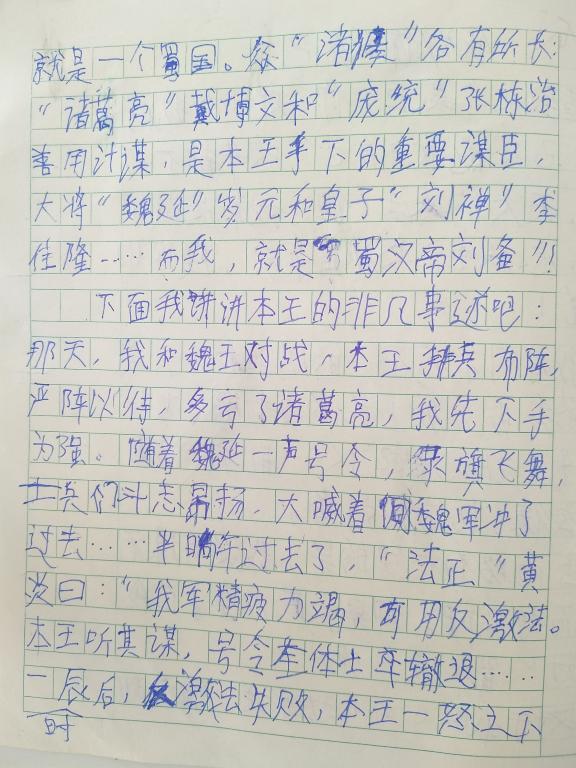 就是一个蜀国。众“诸侯”各有所长:
“诸葛亮”戴博文和“庞统”张栋浩
善用计谋，是本王手下的重要谋臣，
大将“魏延”岁元和皇子“刘禅”李
佳隆……而我，就是蜀汉帝刘备!!!
下面我讲讲本王的非凡事迹吧:
那天，我和魏王对战，本王排兵布阵，
严阵以待，多亏了诸葛亮，我先下手
为强。随着魏延一声号令，旗飞舞，
士兵们斗志昂扬，大喊着向魏军冲了
过去……半晌午过去了，“法正”黄
次曰:“我军精疲力竭，可用反激法。
本王听其谋，号令全体士卒撤退……
一时辰后，激法失败，本王一怒之下